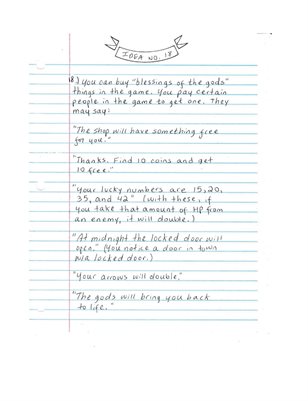 IDEA NO. 18
18.) You can buy "blessings of the gods"
things in the game. You pay certain
people in the game to get one. They
may say:
"The shop will have something free
for you."
"Thanks. Find 10 coins and get
10 free."
"Your lucky numbers are 15, 20,
35, and 42" (with these, if
you take that amount of HP from
an enemy, it will double.)
"At midnight the locked door will
open." (You notice a door in town
w/a locked door.)
"Your arrows will double."
"The gods will bring you back
to life."